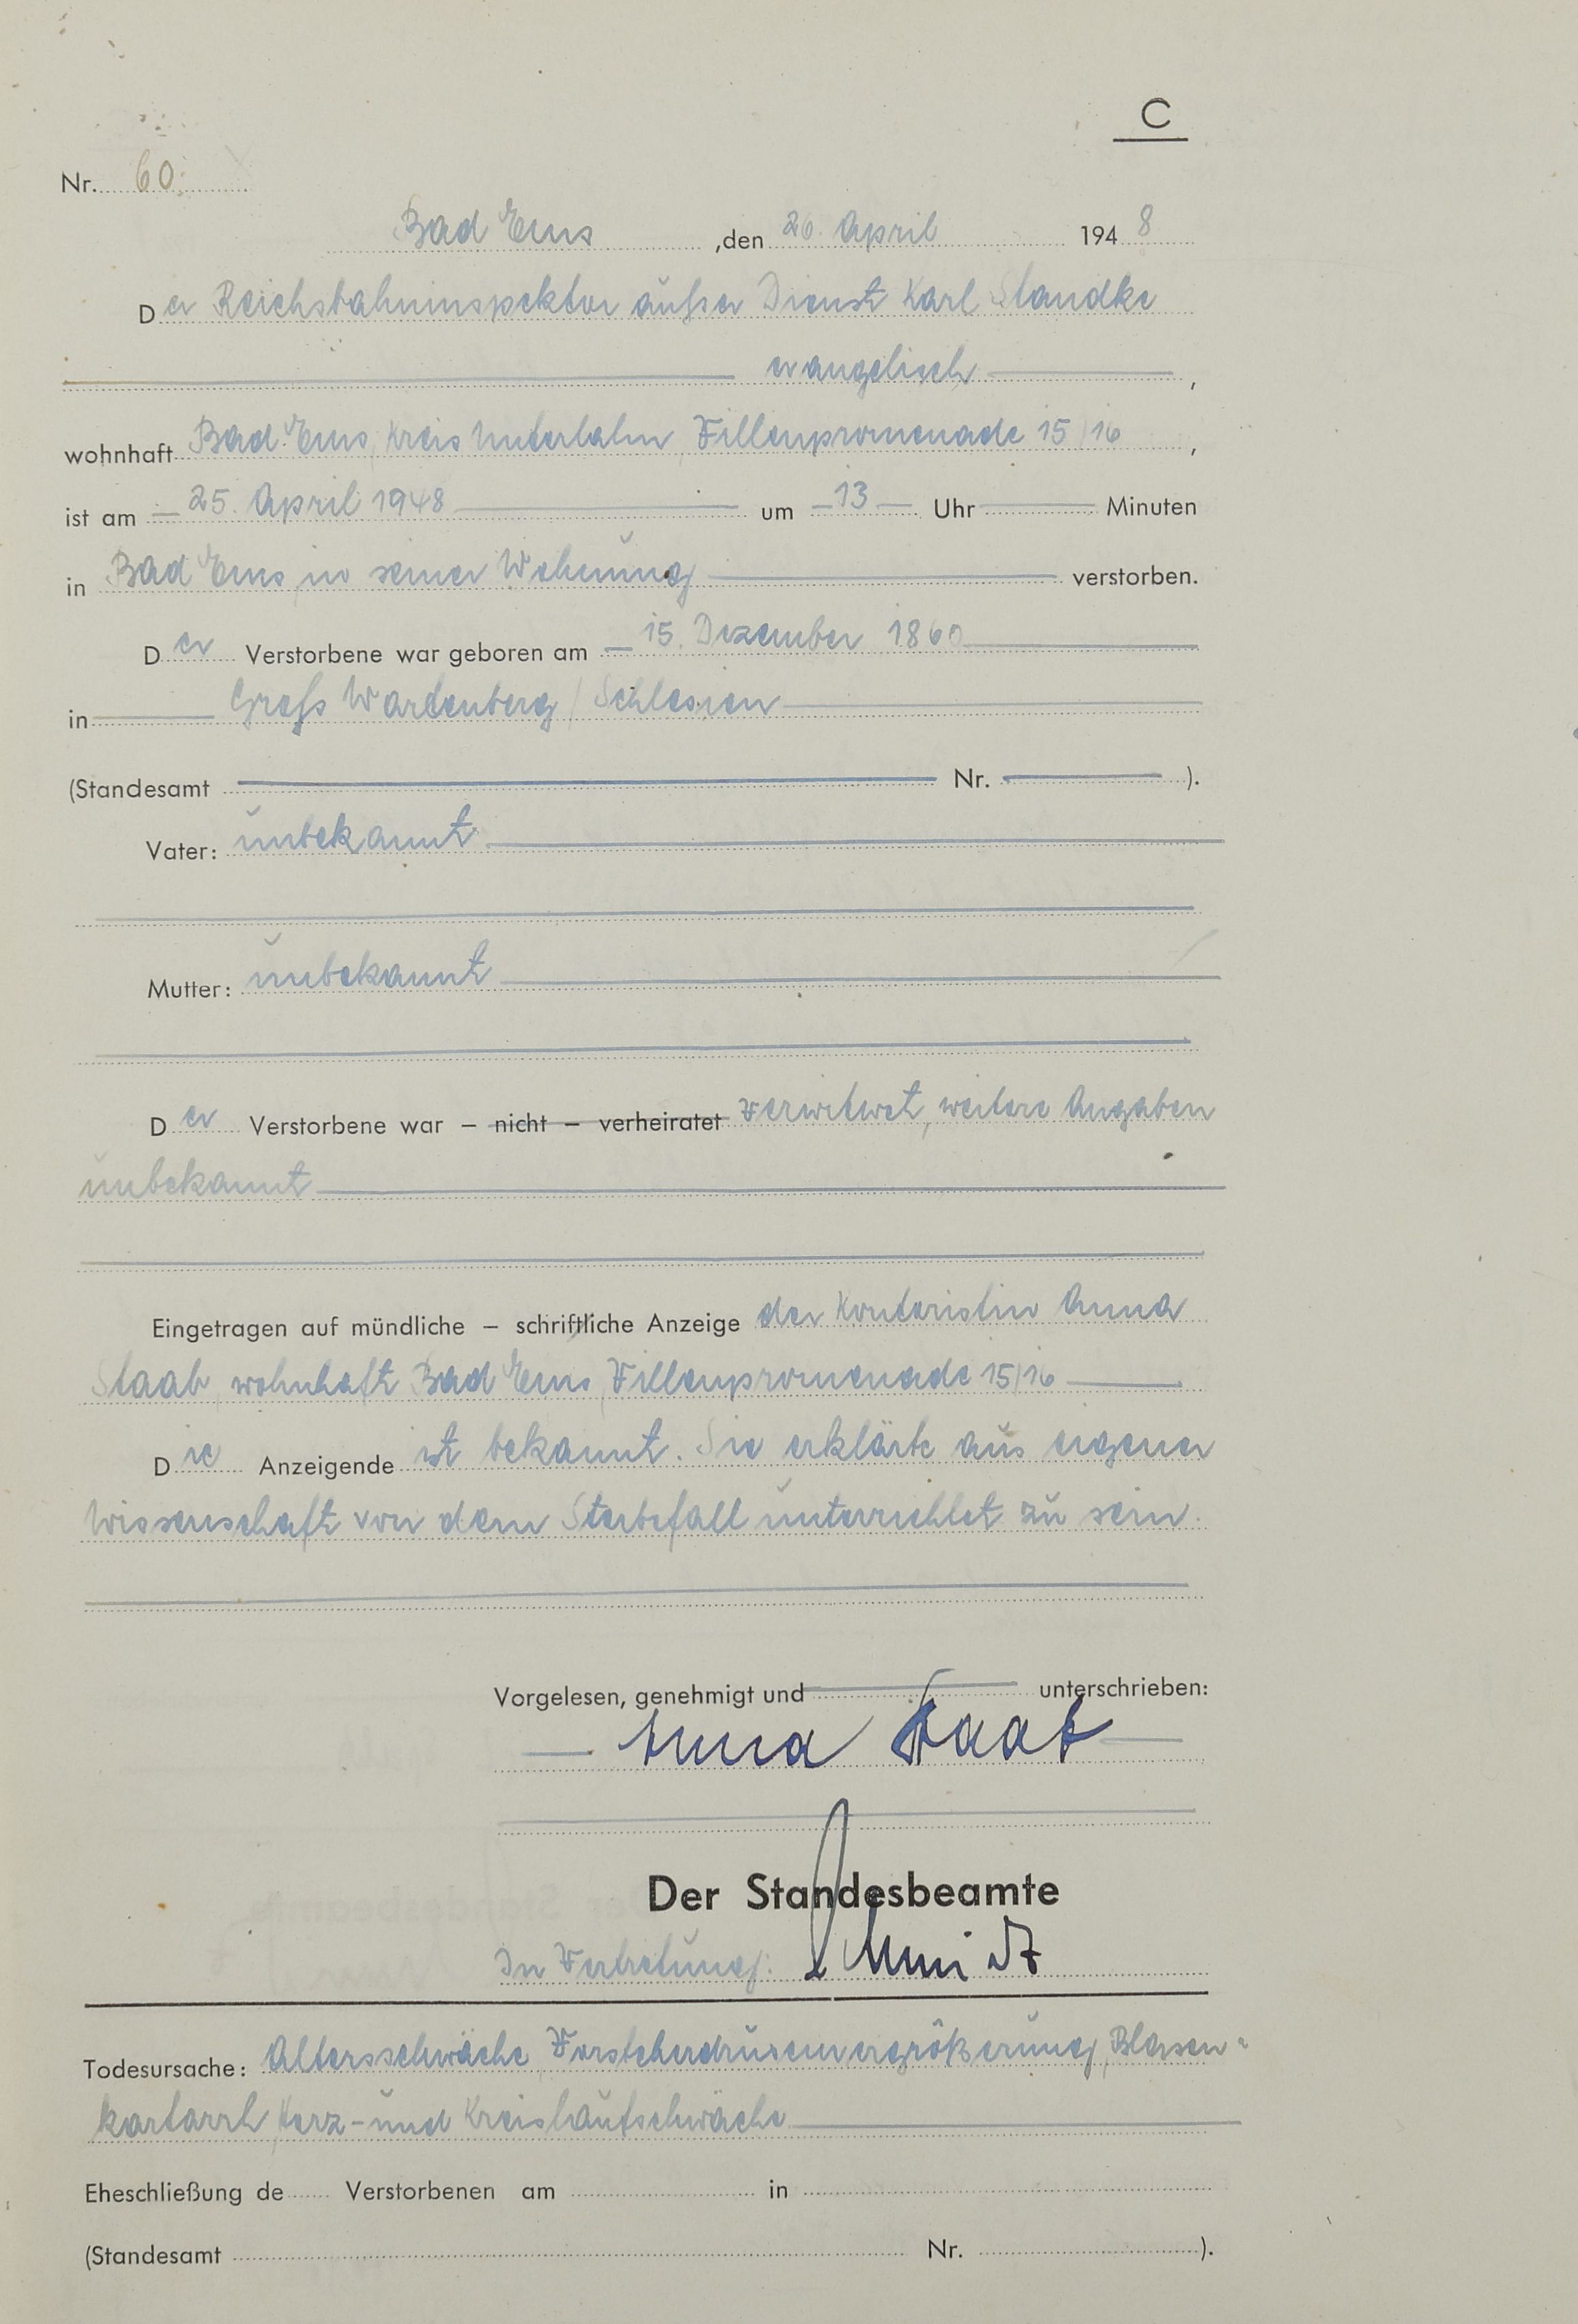 C
Nr. 60.
Bad Ems, den 26. April 1948
Der Reichsbahninspektor außer Dienst Karl Standke
evangelisch,
wohnhaft Bad Ems, Kreis Unterlahn, Villenpromenade 15/16,
ist am 25. April 1948 um 13 Uhr Minuten
in Bad Ems, in seiner Wohnung verstorben.
Der Verstorbene war geboren am 15. Dezember 1860
in Groß Wartenberg / Schlesien
(Standesamt Nr. ).
Vater: unbekannt
Mutter: unbekannt
Der Verstorbene war – nicht – verheiratet Verwitwet, weitere Angaben
unbekannt
Eingetragen auf mündliche – schriftliche Anzeige der Kontoristin Anna
Staab, wohnhaft Bad Ems, Villenpromenade 15/16
Die Anzeigende ist bekannt. Sie erklärte aus eigener
Wissenschaft von dem Sterbefall unterrichtet zu sein.
Vorgelesen, genehmigt und unterschrieben:
Anna Staab
Der Standesbeamte
In Vertretung: Schmidt
Todesursache: Altersschwäche, Vorsteherdrüsenvergrößerung, Blasen-
kartarrh, Herz- und Kreislaufschwäche
Eheschließung de Verstorbenen am in
(Standesamt Nr. ).